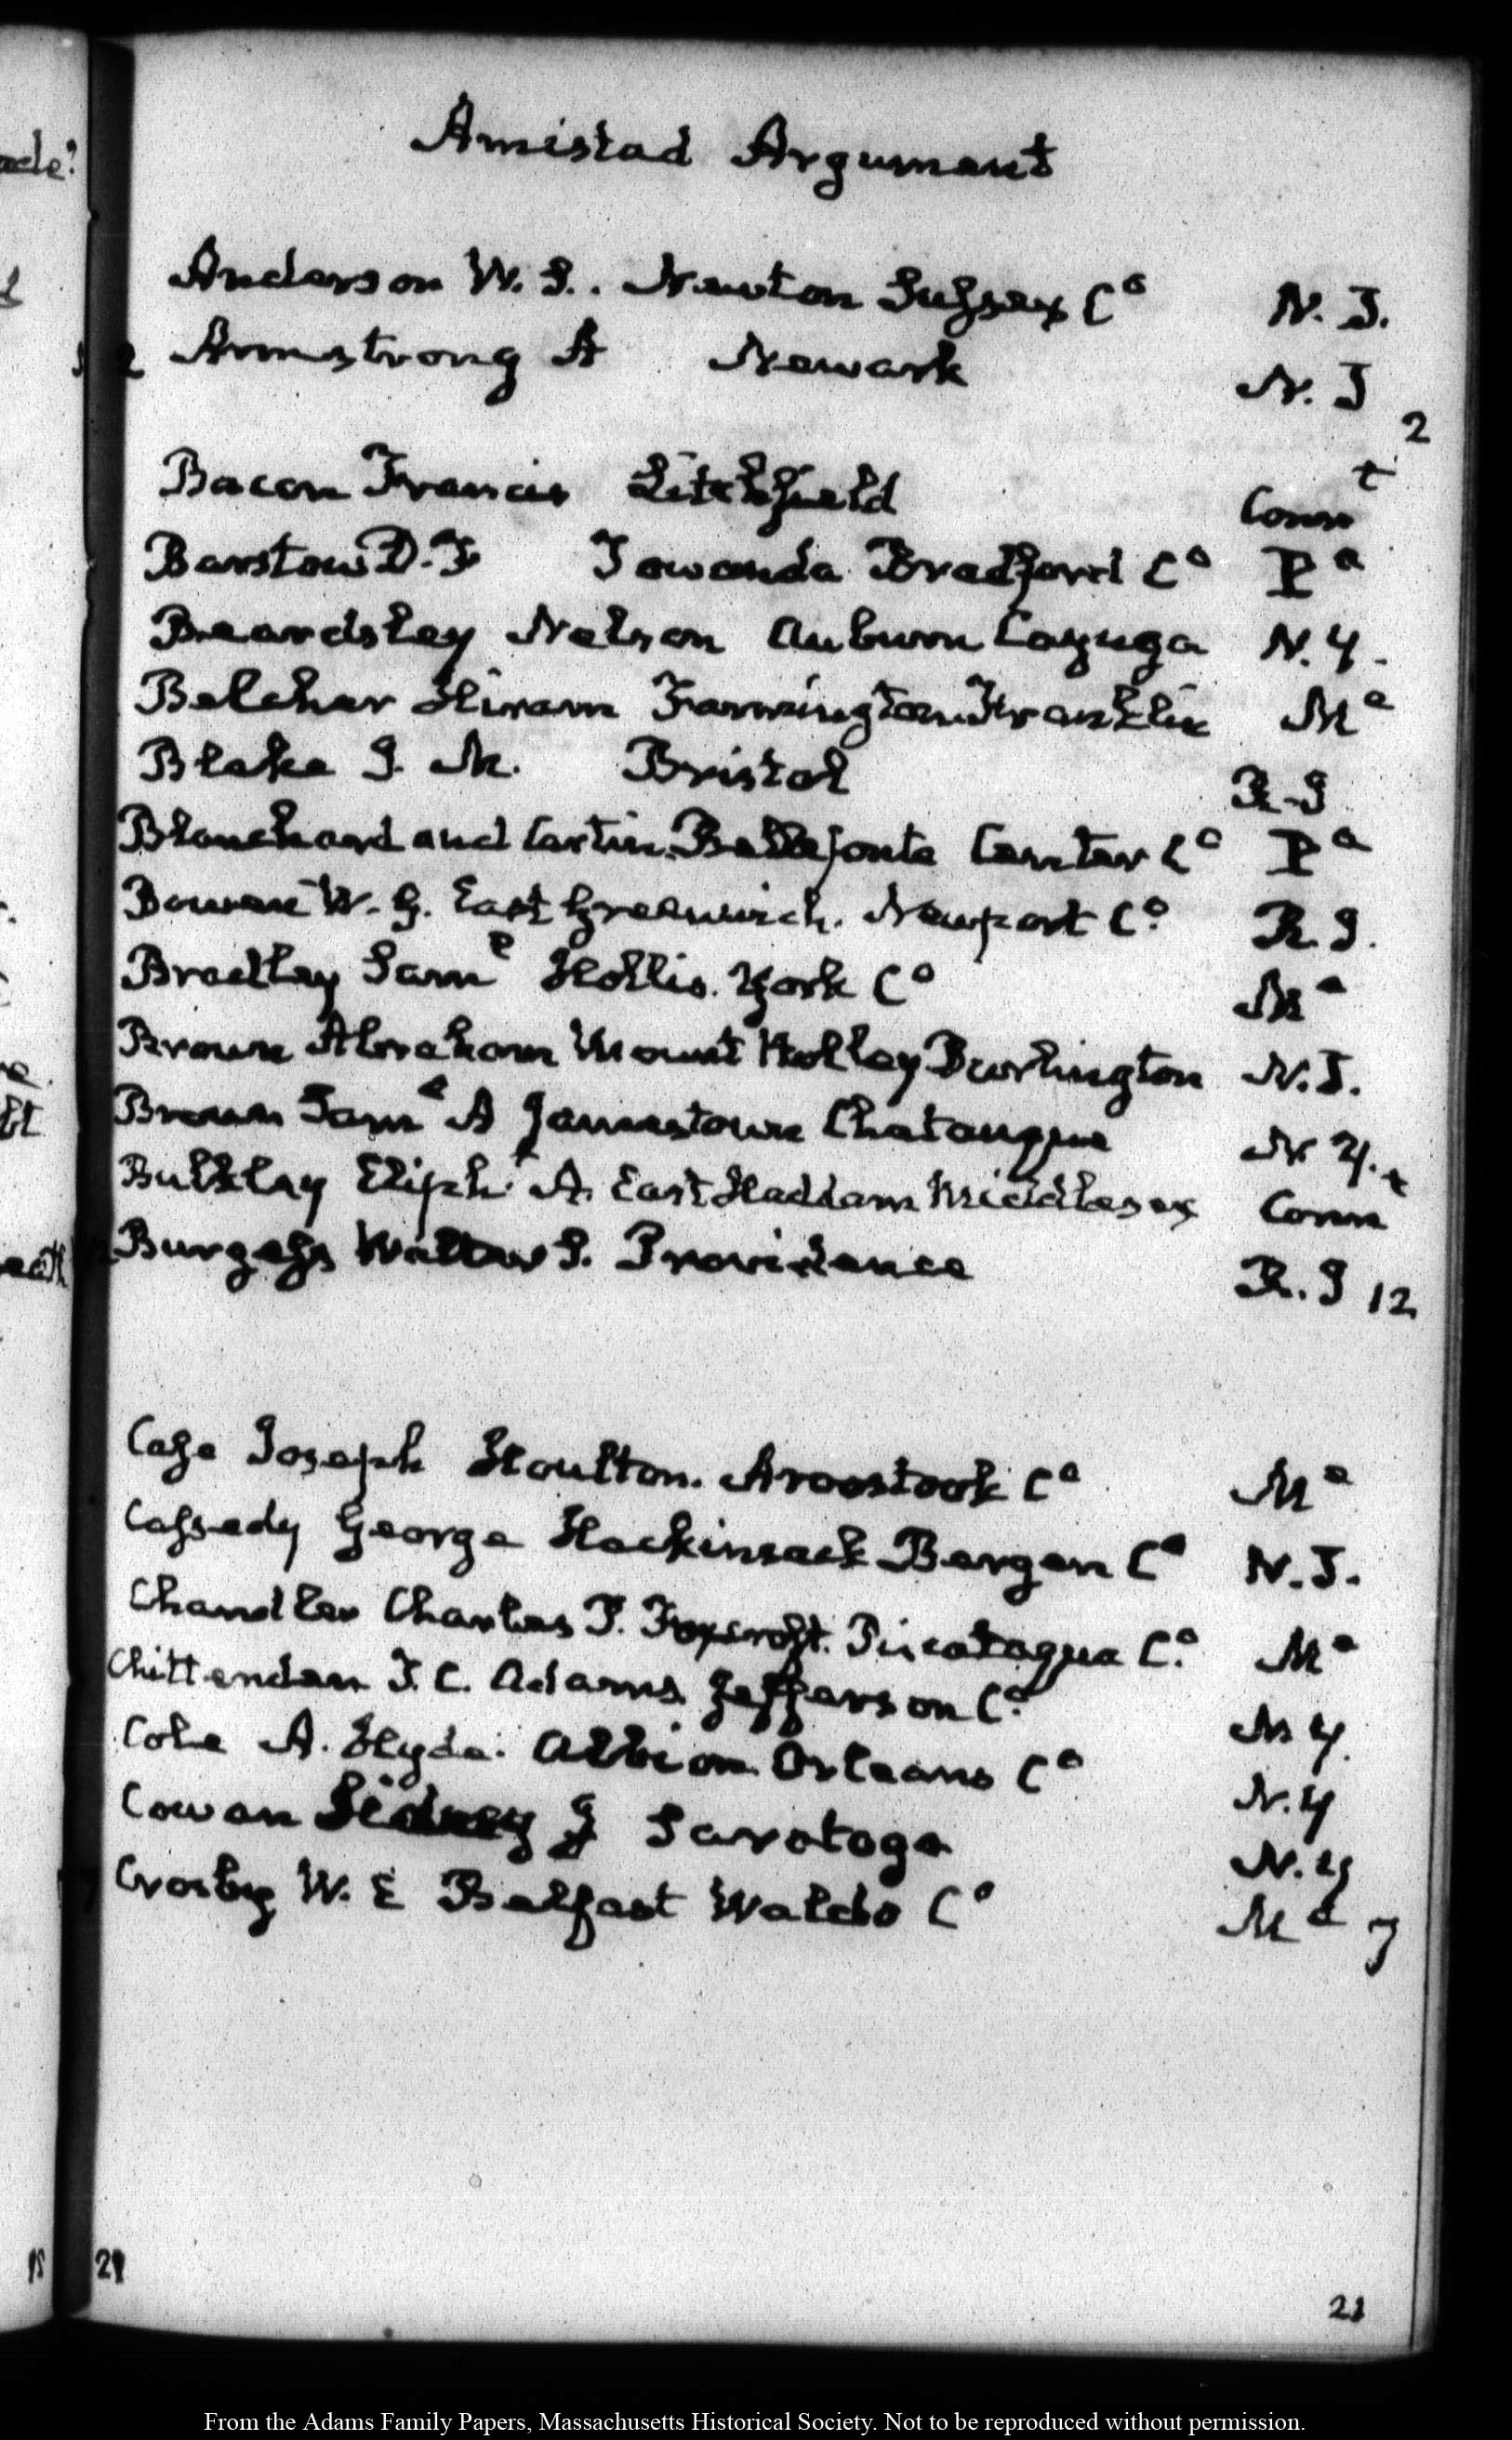 acle?
Amistad Argument
Anderson W. S.. Newton Sussex Co N. J.
Armstrong A Newark N. J
2
Bacon Francis Litchfield Connt
Barstow D. F Towanda Bradford Co Pa
Beardsley Nelson Auburn Cayuga N. Y.
Belcher Hiram Farmington Franklin Me
Blake J. M. Bristol R-I
Blanchard and Curtin. Bellefonte Center Co Pa
Bowen W. G. East Greenwich. Newport Co. R. I.
Bradley Saml Hollis. York Co Me
Brown Abraham Mount Holley Burlington N. J.
Brown Saml A Jamestown Chatauque N Y.
Bulkley Eliph: A. East Haddam Middlesex Connt
Burgess Walter S. Providence R. I 12
Case Joseph Houlton. Aroostook Co Me
Cassedy George Hackinsack Bergen Co N. J.
Chandler Charles P. Foxcroft. Piscataqua Co. Me
Chittenden T. C. Adams. Jefferson Co. N Y.
Cole A. Hyde. Albion. Orleans Co N. Y
Cowan Sidney J Saratoga N. Y
Crosby W. E Belfast Waldo Co Me 7
21
21
From the Adams Family Papers, Massachusetts Historical Society. Not to be reproduced without permission.